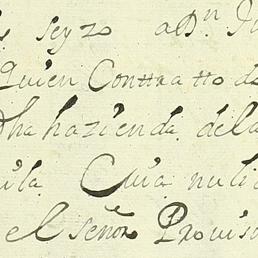 seyzo aDn Ju
Quien Contratto de
Dha hazienda dela
uila. Cuia nuli
el señor Prouiso